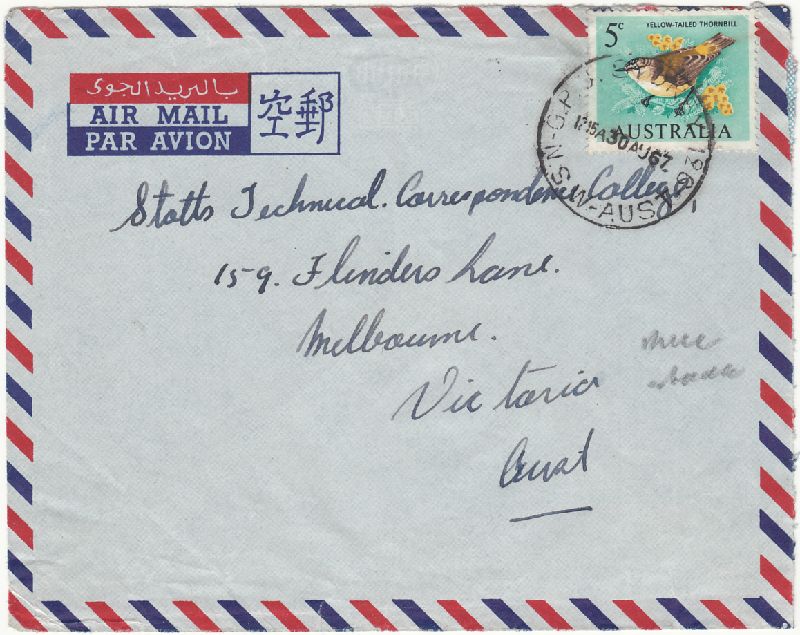 بالبريد الجوى
AIR MAIL
PAR AVION
空郵
5c
YELLOW-TAILED THORNBILL
AUSTRALIA
1215A 30 AU 67
N.S.W-AUST
Stotts Technical. Correspondence College
159. Flinders Lane.
Melbourne.
Victoria
Aust